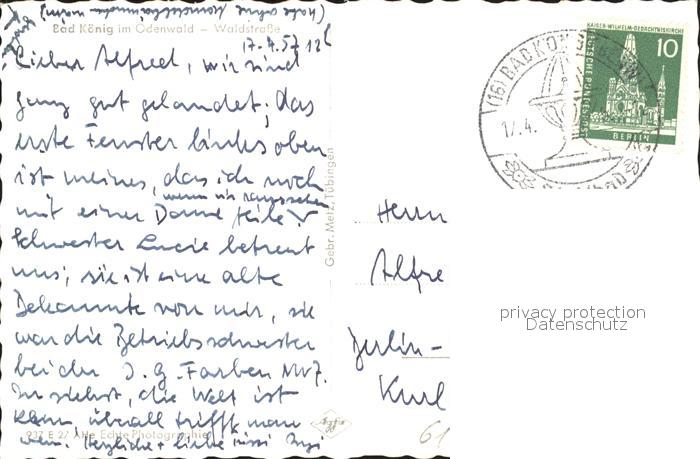 Bad König im Odenwald – Waldstraße
17.4.57 12h
Lieber Alfred, wir sind
ganz gut gelandet; das
erste Fenster links oben
ist meines, das ich noch
mit einer Dame teile
wenn wir rausgehen
Schwester Lucie betreut
uns; sie ist eine alte
Bekannte von mir, sie
war die Betriebsschwester
bei der I.G. Farben NW7.
Du siehst, die Welt ist
klein, überall trifft man
wen. Herzliche + liebe
237 E 27 Alle Echte Photographie
Gebr. Metz, Tübingen
(16) BAD KÖN
17.4.
KAISER-WILHELM-GEDÄCHTNISKIRCHE
10
DEUTSCHE BUNDESPOST
BERLIN
Herrn
Alfre
Berlin-
61
privacy protection
Datenschutz